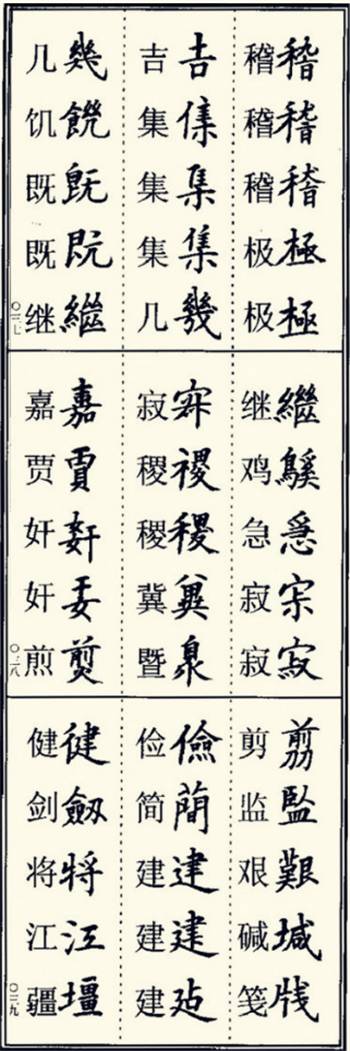 稽稽
稽稽
稽稽
极極
极極
吉𠮷
集
集集
集集
几幾
几幾
饥饑
既旣
既既
继繼
〇三七
继繼
鸡
急急
寂
寂
寂
稷
稷稷
冀
暨
嘉嘉
贾賈
奸姧
奸
煎
〇三八
剪剪
监監
艰艱
碱堿
笺牋
俭儉
简蕳
建建
建建
建
健健
剑劔
将將
江江
疆壃
〇三九